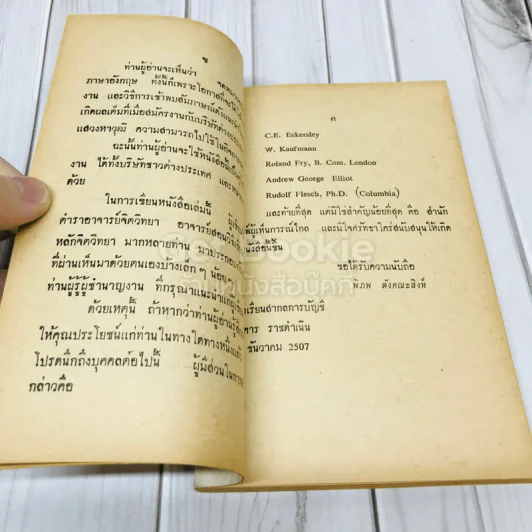 ข
ท่านผู้อ่านจะเห็นว่า
ภาษาอังกฤษ ทั้งนี้ก็เพราะโอกาสที่จะได้
งาน และวิธีการเข้าพบสัมภาษณ์ดังแนะ
เกิดผลเต็มที่เมื่อสมัครงานกับบริษัทต่าง
แสวงหาวุฒิ ความสามารถไปใช้ในกิจ
ฉะนั้นท่านผู้อ่านจะใช้หนังสือนี้เป็น
งาน ได้ทั้งบริษัทชาวต่างประเทศ และ
ด้วย
ในการเขียนหนังสือเล่มนี้ ผู้
ตำราอาจารย์จิตวิทยา อาจารย์สอนวิช
หลักจิตวิทยา มากหลายท่าน มาประกอบ
ที่ผ่านเห็นมาด้วยตนเองบางเล็ก ๆ น้อย
ท่านผู้รู้ผู้ชำนาญงาน ที่กรุณาแนะนำแก่ผู้
ด้วยเหตุนี้ ถ้าหากว่าท่านผู้อ่านรู้สึก
ให้คุณประโยชน์แก่ท่านในทางใดทางหนึ่ง
โปรดนึกถึงบุคคลต่อไปนี้ ผู้มีส่วนในการ
กล่าวคือ
ค
C.E. Eckersley
W. Kaufmann
Roland Fry, B. Com. London
Andrew George Elliot
Rudolf Flesch, Ph.D. (Columbia)
และท้ายที่สุด แต่มิใช่สำคัญน้อยที่สุด คือ สำนัก
ผู้เห็นการณ์ไกล และมีใจศรัทธาใคร่สนับสนุนให้เกิด
หนังสือนี้ขึ้น
ขอได้รับความนับถือ
พิภพ ตังคณะสิงห์
เรียนสากลการบัญชี
คาร ราชดำเนิน
ธันวาคม 2507
Bookie
ร้านหนังสือบุ๊คกี้